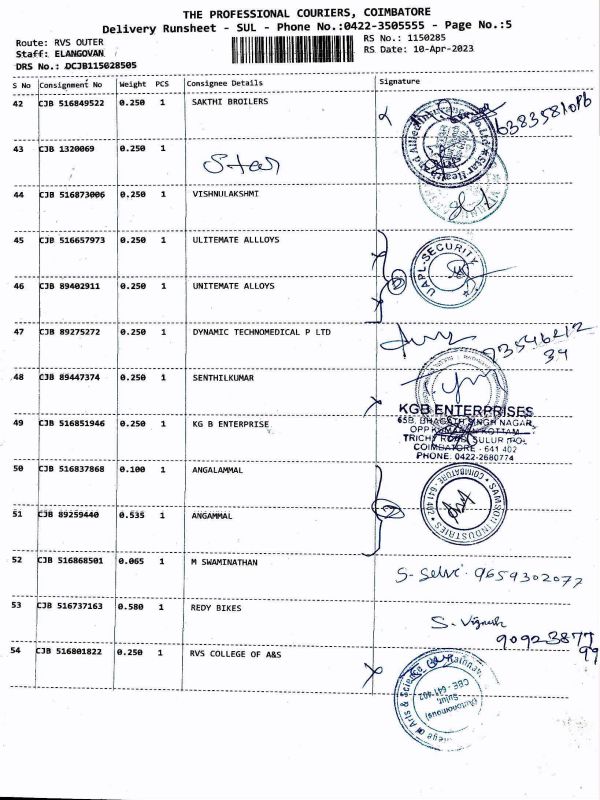 THE PROFESSIONAL COURIERS, COIMBATORE
Delivery Runsheet - SUL - Phone No.:0422-3505555 - Page No.:5
Route: RVS OUTER
RS No.: 1150285
Staff: ELANGOVAN
RS Date: 10-Apr-2023
DRS No.: DCJB115028505
S No Consignment No Weight PCS Consignee Details Signature
42 CJB 516849522 0.250 1 SAKTHI BROILERS
43 CJB 1320069 0.250 1 Star
44 CJB 516873006 0.250 1 VISHNULAKSHMI
45 CJB 516657973 0.250 1 ULITEMATE ALLLOYS
UAPL-SECURITY
46 CJB 89402911 0.250 1 UNITEMATE ALLOYS
47 CJB 89275272 0.250 1 DYNAMIC TECHNOMEDICAL P LTD
48 CJB 89447374 0.250 1 SENTHILKUMAR
KGB ENTERPRISES
49 CJB 516851946 0.250 1 KG B ENTERPRISE
65B, BHAGATH SINGH NAGAR,
TRICHY ROAD, SULUR (PO),
COIMBATORE - 641 402
PHONE: 0422-2680774
50 CJB 516837868 0.100 1 ANGALAMMAL
SAMSON INDUSTRIES
COIMBATORE - 641 402
51 CJB 89259440 0.535 1 ANGAMMAL
52 CJB 516868501 0.065 1 M SWAMINATHAN
S. Selvi 9659302077
53 CJB 516737163 0.580 1 REDY BIKES
S. Vignesh
90923877
99
54 CJB 516801822 0.250 1 RVS COLLEGE OF A&S
(Autonomous)
Sulur,
CBE - 641 402